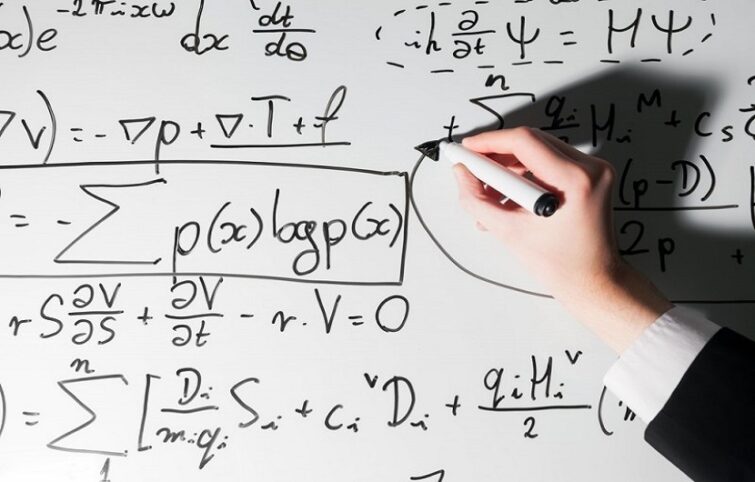 x)e^{-2πixω} dx dt/dθ
iħ ∂/∂t Ψ = HΨ
∇v) = -∇p + ∇·T + f
+ ∑ n q_i H_i^M + c_s
= - ∑ p(x) log p(x)
(p-D) / 2p +
rS ∂V/∂S + ∂V/∂t - r·V = 0
) = ∑_1^n [ D_i/m_i q_i S_i + c_i^v D_i + q_i H_i^v / 2 (